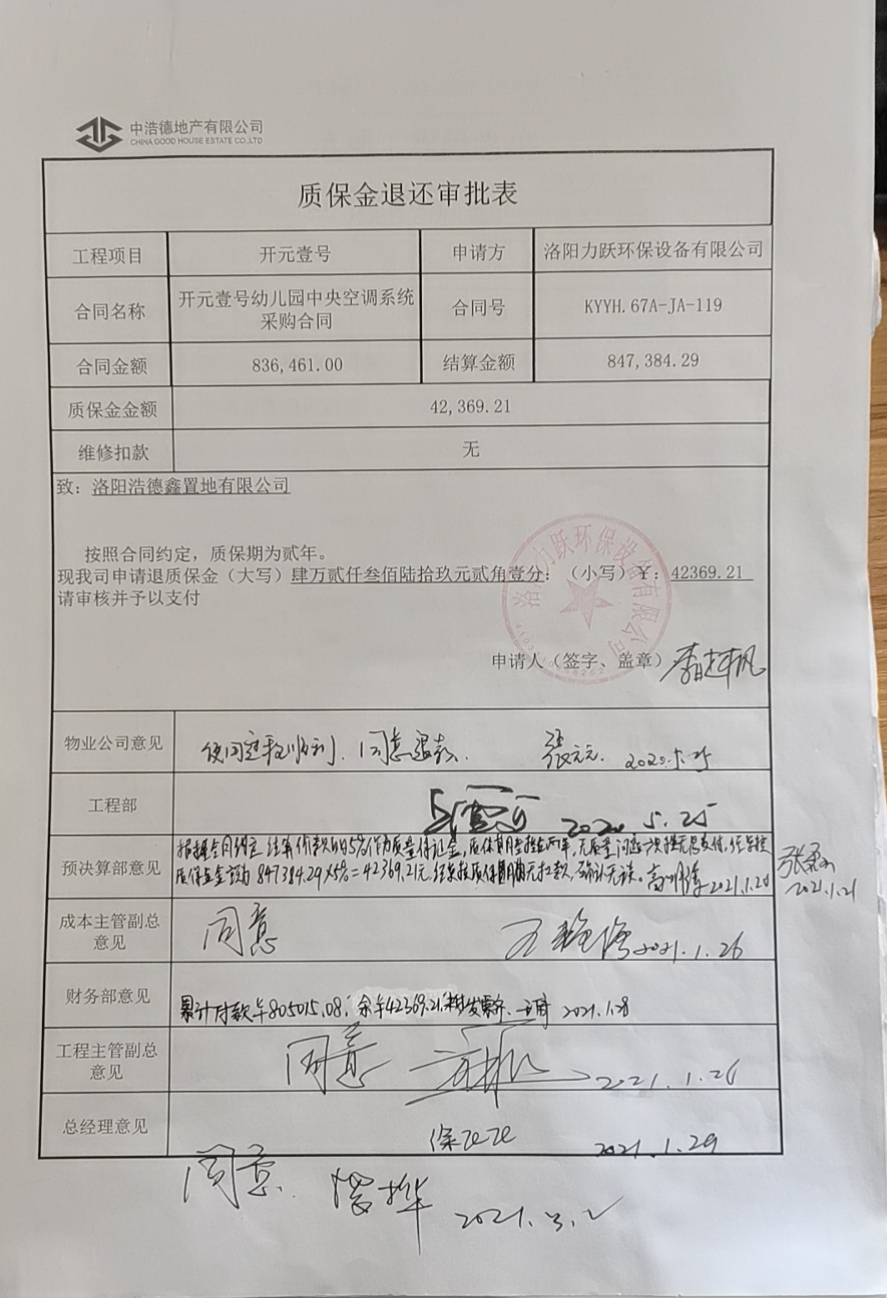 中浩德地产有限公司
CHINA GOOD HOUSE ESTATE CO.,LTD
质保金退还审批表
工程项目 开元壹号 申请方 洛阳力跃环保设备有限公司
合同名称 开元壹号幼儿园中央空调系统
采购合同 合同号 KYYH.67A-JA-119
合同金额 836,461.00 结算金额 847,384.29
质保金金额 42,369.21
维修扣款 无
致：洛阳浩德鑫置地有限公司
按照合同约定，质保期为贰年。
现我司申请退质保金（大写）肆万贰仟叁佰陆拾玖元贰角壹分：（小写）￥：42369.21
请审核并予以支付
洛阳力跃环保设备有限公司
申请人（签字、盖章）
物业公司意见 同意退款. 张元元. 2020.5.25
工程部 2020 5.25
预决算部意见 根据合同约定 结算价款的5%作为质量保证金，
质保金金额为847384.29×5%=42369.21元, 无扣款，确认无误。 2021.1.20
2021.1.21
成本主管副总
意见 同意 2021.1.26
财务部意见 累计付款￥805015.08, 余￥42369.21, 发票齐. 2021.1.28
工程主管副总
意见 同意 2021.1.26
总经理意见 徐飞飞 2021.1.29
同意. 2021.3.2